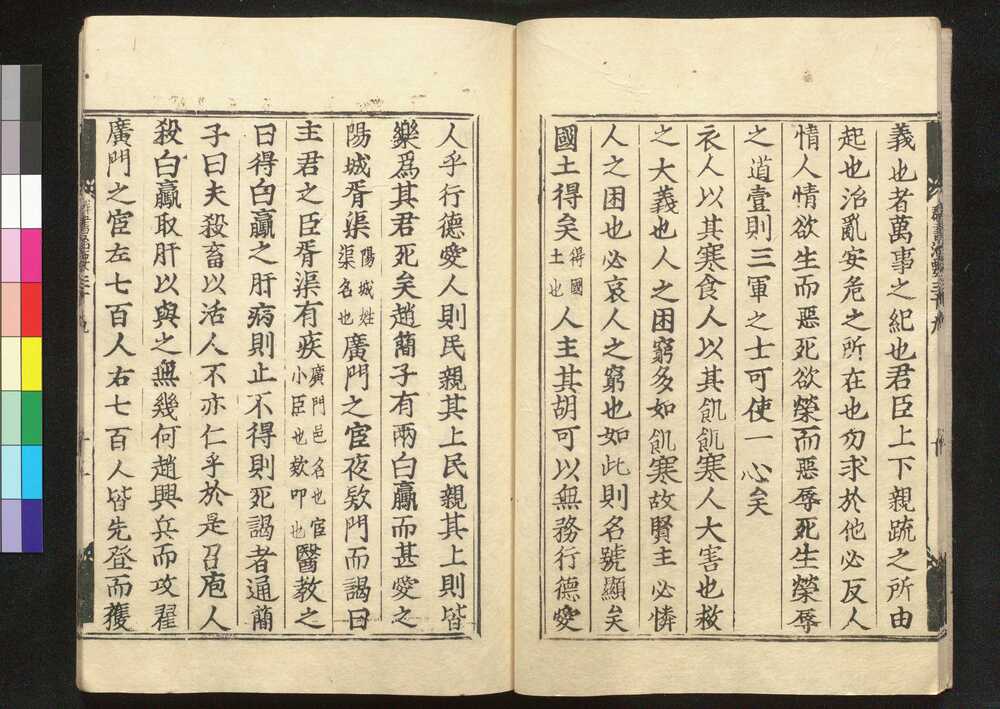 義也者萬事之紀也君臣上下親疏之所由
起也治亂安危之所在也勿求於他必反人
情人情欲生而惡死欲榮而惡辱死生榮辱
之道壹則三軍之士可使一心矣
衣人以其寒食人以其飢飢寒人大害也救
之大義也人之困窮多如飢寒故賢主必憐
人之困也必哀人之窮也如此則名號顯矣
國土得矣得國土也人主其胡可以無務行德愛
人乎行德愛人則民親其上民親其上則皆
樂爲其君死矣趙簡子有兩白驘而甚愛之
陽城胥渠陽城姓渠名也廣門之官夜欵門而謁曰
主君之臣胥渠有疾廣門邑名也官小臣也欵叩也醫教之
曰得白驘之肝病則止不得則死謁者通簡
子曰夫殺畜以活人不亦仁乎於是召庖人
殺白驘取肝以與之無幾何趙興兵而攻翟
廣門之官左七百人右七百人皆先登而獲